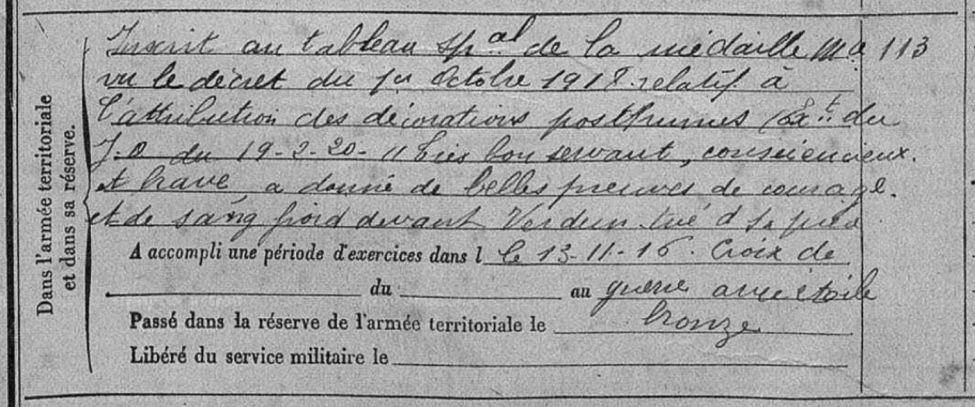 Dans l'armée territoriale
et dans sa réserve.
Inscrit au tableau spal de la médaille Mre 113
vu le décret du 1er Octobre 1918. relatif à
l'attribution des décorations posthumes (Ext. du
J.O du 19-2-20- "Très bon servant, consciencieux.
et brave a donné de belles preuves de courage.
et de sang froid devant Verdun. tué à sa pièce
A accompli une période d'exercices dans l le 13-11-16. Croix de
du au guerre avec étoile
Passé dans la réserve de l'armée territoriale le bronze
Libéré du service militaire le